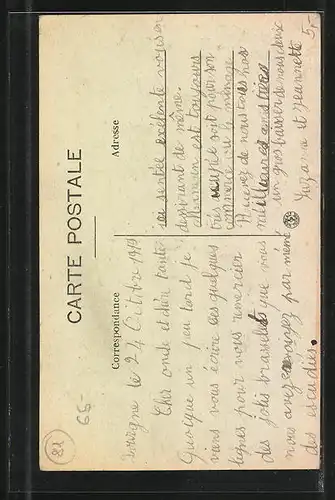 CARTE POSTALE
Correspondance
Adresse
le 24 Octobre 1919
Cher oncle et chère tante
Quoique un peu tard je
viens vous écrire ces quelques
lignes pour vous remercier
des jolis bracelets que vous
nous avez envoyez par mémé
des
santée exélente
desirant de même.
est toujours
très soit pour son
commerce ou le ménage
Recevez de nous tous nos
meilleures amitiées
un gros baisser de nous deux
Suzanne et Jeannette
5,-
66-
81